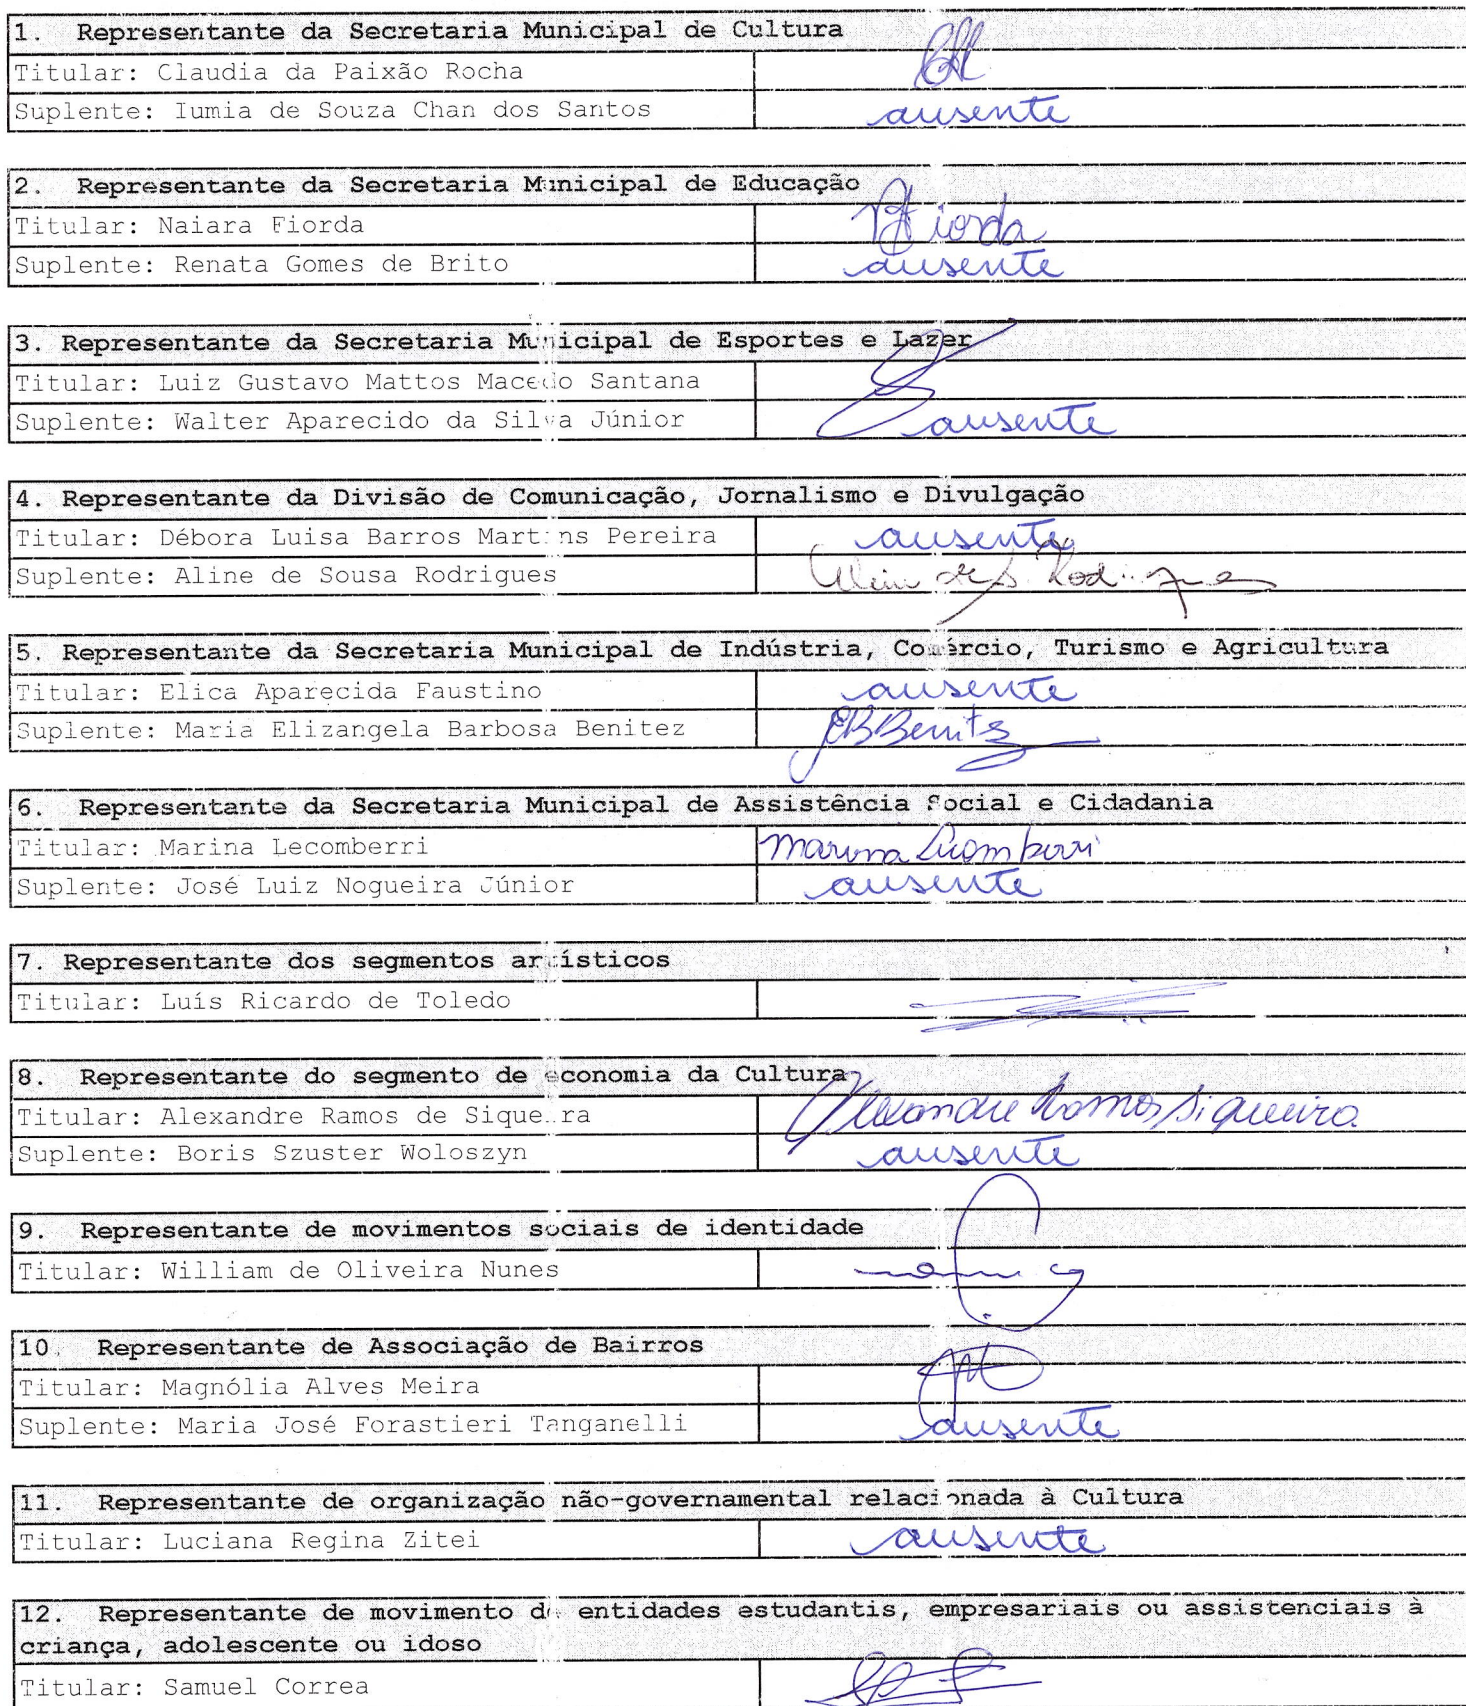 1. Representante da Secretaria Municipal de Cultura
Titular: Claudia da Paixão Rocha
Suplente: Iumia de Souza Chan dos Santos ausente
2. Representante da Secretaria Municipal de Educação
Titular: Naiara Fiorda NFiorda
Suplente: Renata Gomes de Brito ausente
3. Representante da Secretaria Municipal de Esportes e Lazer
Titular: Luiz Gustavo Mattos Macedo Santana
Suplente: Walter Aparecido da Silva Júnior ausente
4. Representante da Divisão de Comunicação, Jornalismo e Divulgação
Titular: Débora Luisa Barros Martins Pereira ausente
Suplente: Aline de Sousa Rodrigues Aline de S. Rodrigues
5. Representante da Secretaria Municipal de Indústria, Comércio, Turismo e Agricultura
Titular: Elica Aparecida Faustino ausente
Suplente: Maria Elizangela Barbosa Benitez EBBenitez
6. Representante da Secretaria Municipal de Assistência Social e Cidadania
Titular: Marina Lecomberri Marina Lecomberri
Suplente: José Luiz Nogueira Júnior ausente
7. Representante dos segmentos artísticos
Titular: Luís Ricardo de Toledo
8. Representante do segmento de economia da Cultura
Titular: Alexandre Ramos de Siqueira Alexandre Ramos Siqueira
Suplente: Boris Szuster Woloszyn ausente
9. Representante de movimentos sociais de identidade
Titular: William de Oliveira Nunes
10. Representante de Associação de Bairros
Titular: Magnólia Alves Meira
Suplente: Maria José Forastieri Tanganelli ausente
11. Representante de organização não-governamental relacionada à Cultura
Titular: Luciana Regina Zitei ausente
12. Representante de movimento de entidades estudantis, empresariais ou assistenciais à
criança, adolescente ou idoso
Titular: Samuel Correa